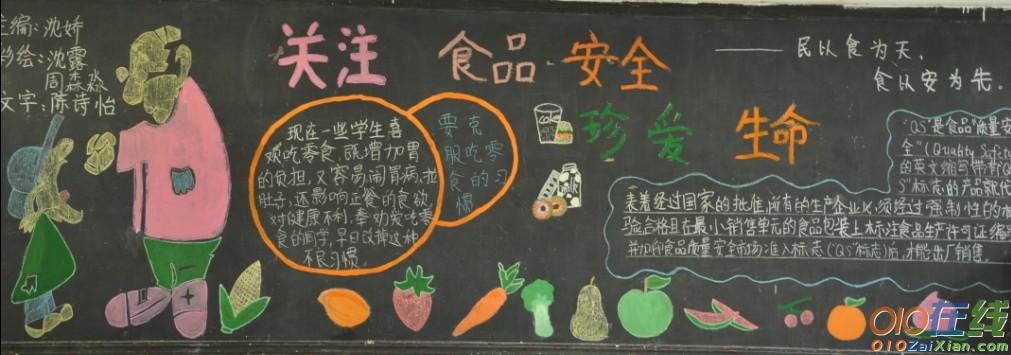 主编:沈娇
彩绘:沈露
周森淼
文字:陈诗怡
关注
食品·安全
珍爱
生命
——民以食为天,
食以安为先。
现在一些学生喜
欢吃零食,既增加胃
的负担,又容易闹胃病,拉
肚子,还影响正餐的食欲,
对健康不利,奉劝爱吃零
食的同学,早日改掉这种
不良习惯。
要克
服吃零
食的习
惯
"QS"是食品"质量安
全"(Quality Safety
的英文缩写,带有Q
S"标志的产品就代
表着经过国家的批准,所有的生产企业,须经过强制性的检
验合格且在最小销售单元的食品包装上标注食品生产许可证编号
并加印食品质量安全市场准入标志("QS"标志)后,才能出厂销售。
010在线
010ZaiXian.com